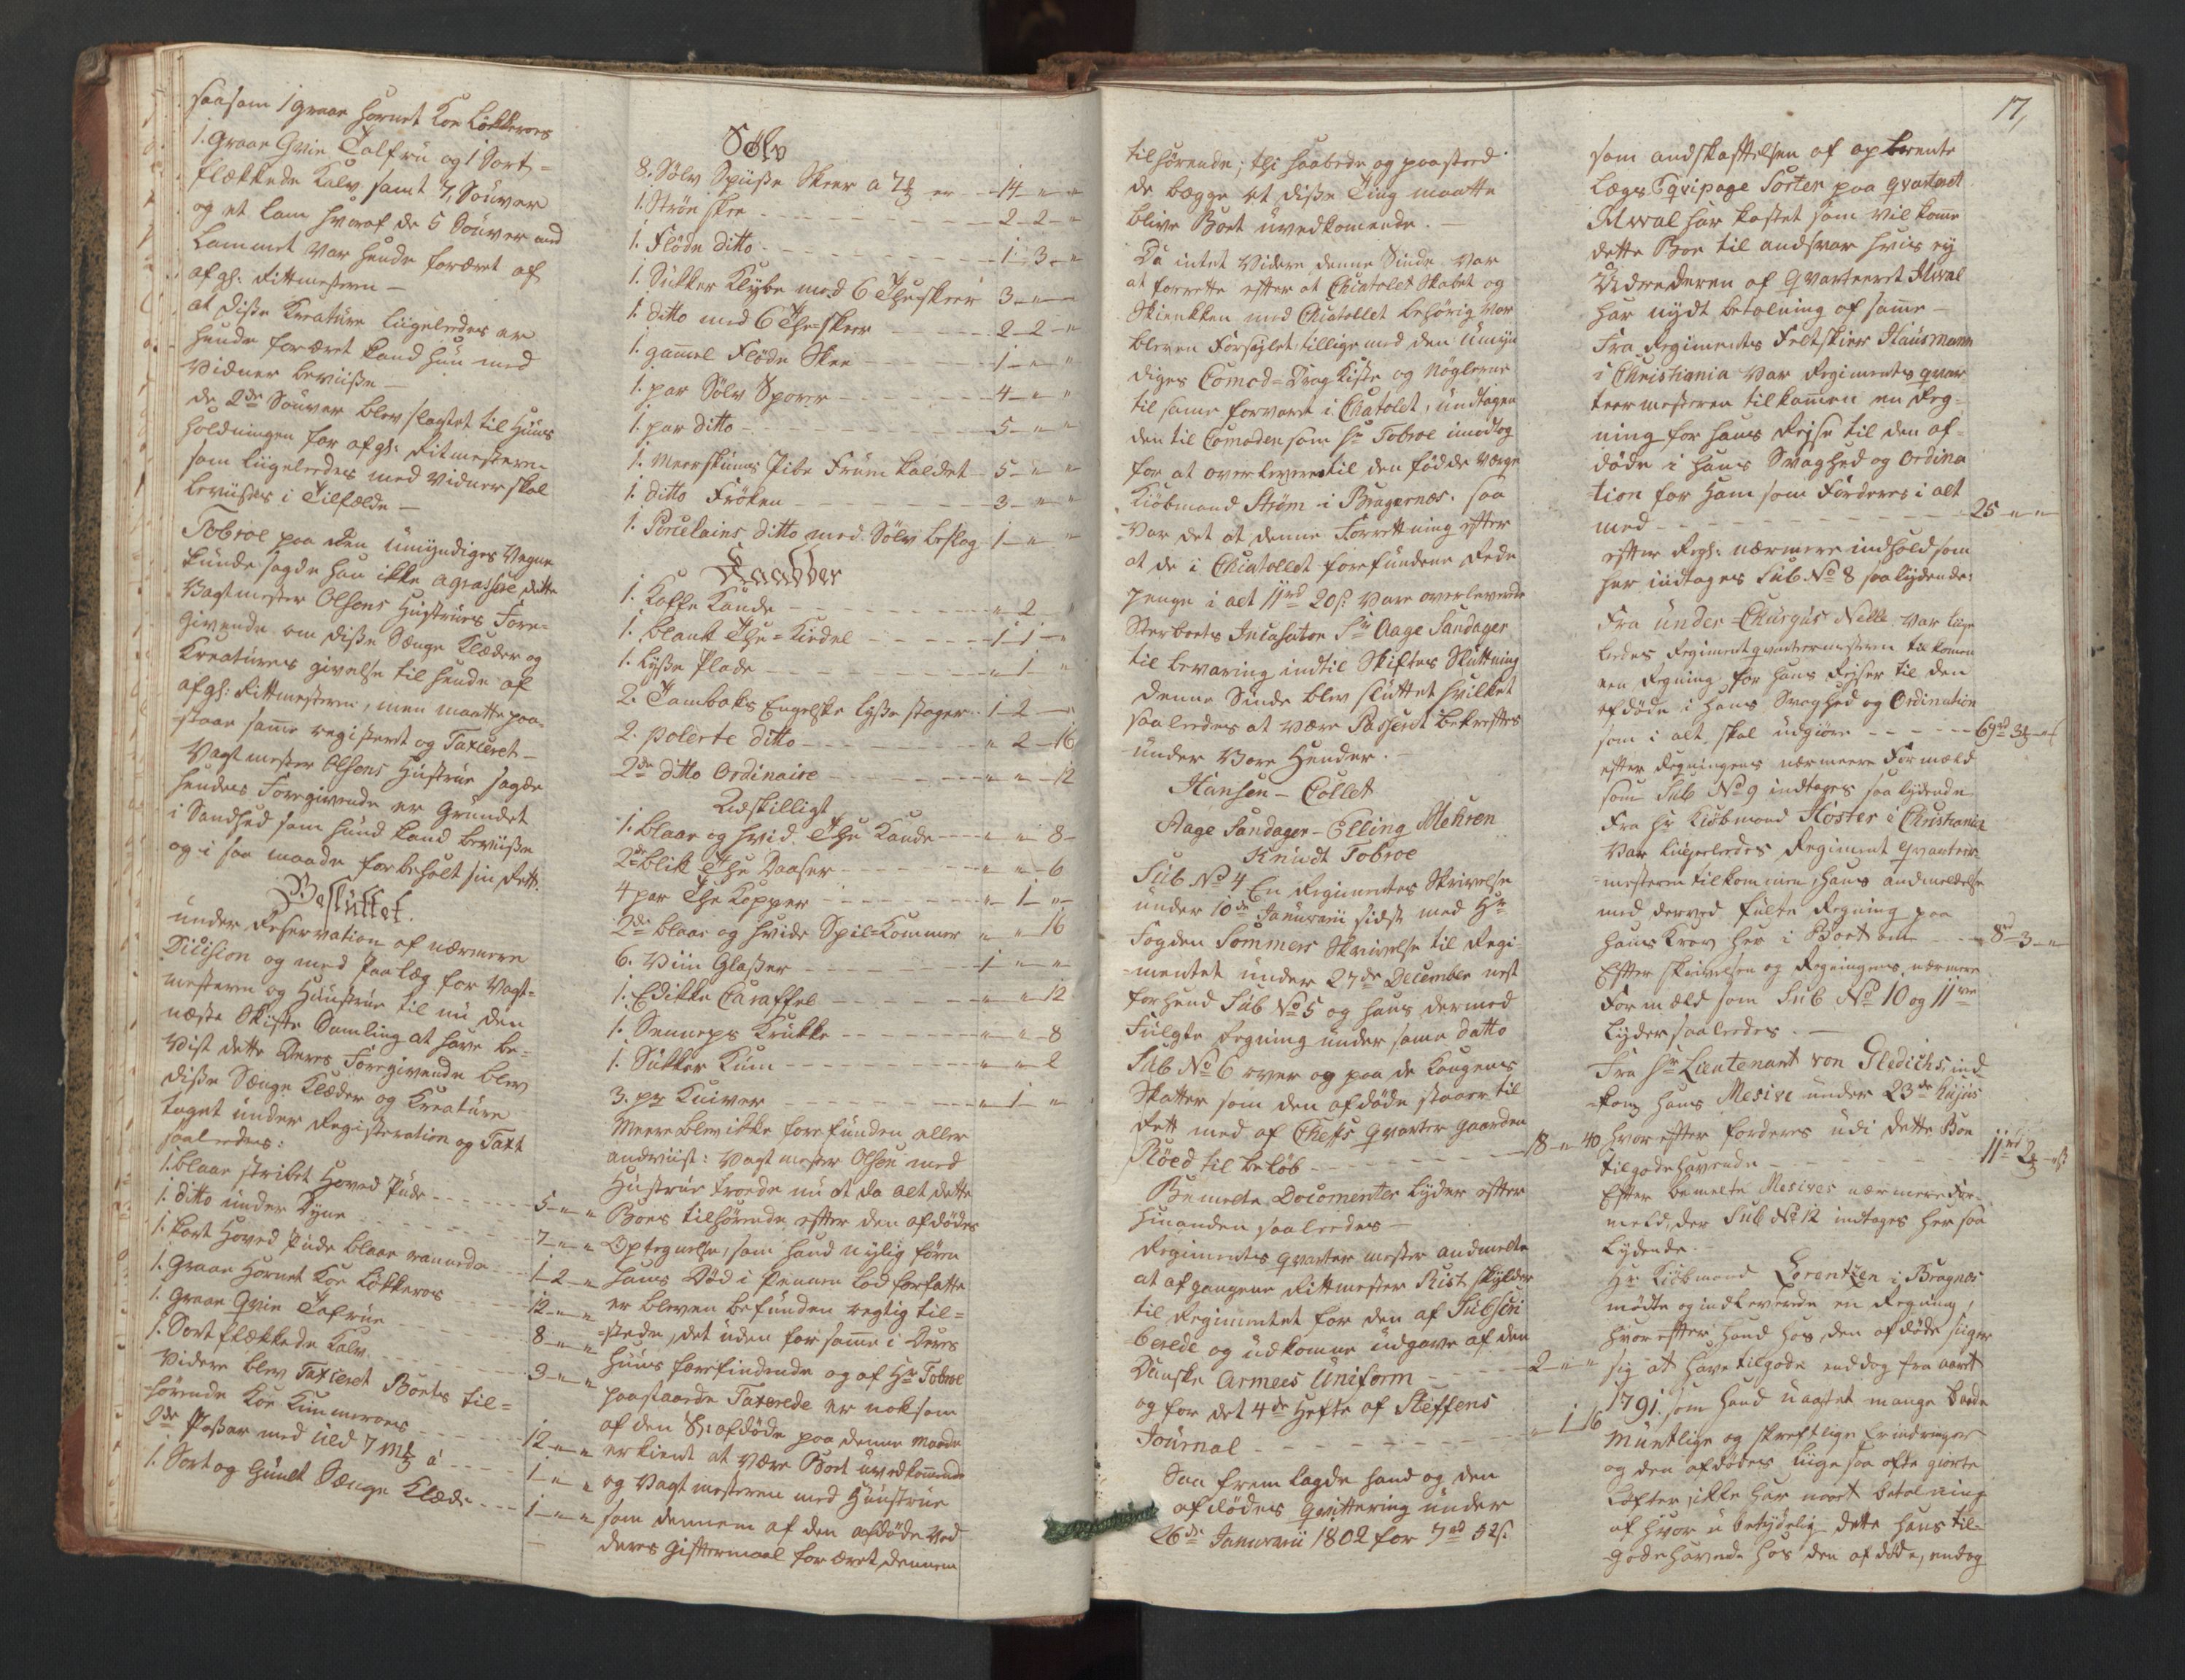 saasom 1 graae hornet Koe Løkkeroes
1. Graae Qvie Talfrii og 1 Sort=
flækkede Kalv samt 7 Souver
og et Lam hvoraf de 5 Souver med
Lammet var hende foræret af
afgl: Rittmesteren —
at disse Kreature liigeledes er
hende foræret kand hun med
Vidner beviisse —
de 2de Souver blev slagtet til Huus
holdningen for afgl: Ritmesteren
som liigeledes med Vidner skal
beviises i Tilfælde —
Tobroe paa den Umyndiges Vegne
kunde sagde han ikke agvissere dette
Vagtmester Olsens Hustrues Fore=
givende om disse Senge Klæder og
Kreaturers givelse til hende af
afgl: Rittmesteren, men maatte paa=
staae samme registeret og Taxeret —
Vagtmester Olsens Hustrue sagde
hendes Foregivende er Grundet
i Sandhed som hun kand beviisse
og i saa maade forbeholt sin Rett.
Besluttet.
under Reservation af nærmere
Dicision og med Paalæg for Vagt=
mesteren og Huustrue til nu den
næste Skifte Samling at have be=
vist dette Deres Foregivende blev
disse Senge Klæder og Kreature
taget under Registeration og Taxt
saaledes:
1. blaae stribet Hoved Pude - - - 5 - " - "
1. ditto under Dyne - - - 7 - " - "
1. kort Hoved Pude blaae rannede - - 1 - 2 - "
1. Graae Hornet Koe Løkkeroes - - 12 - " - "
1. Graae Qvie Talfrue - - - 8 - " - "
1. Sort flækkede Kalv - - - 3 - " - "
Videre blev Taxeret Boets til=
hørende Koe Kimmeroes - - - 12 - " - "
2de med Uld 7 a - - 1 - " - "
1. Sort og Guult Senge Klæde - - 1 - " - "
Sølv
8. Sølv Spiisse Skeer a 7 er - - 14 - " - "
1. Strøe skee - - - 2 - 2 - "
1. Fløde ditto - - - 1 - 3 - "
1. Sukker Klype med 6 Theeskeer 3 - " - "
1. ditto med 6 Thee=skeer - - - 2 - 2 - "
1. gammel Fløde Skee - - - 1 - " - "
1. par Sølv Sporer - - - 4 - " - "
1. par ditto - - - 5 - " - "
1. Meerskums Pibe Fruen kaldet - 5 - " - "
1. ditto Frøken - - - 3 - " - "
1. Porcelains ditto med Sølv beslag - 1 - " - "
Kaabber
1. Kaffe Kande - - - " - 2 - "
1. blank Thee=Kiedel - - - 1 - 1 - "
1. Lysse Plade - - - " - 1 - "
2. Tambaks Engelske Lysse stager - 1 - 2 - "
2. polerte ditto - - - " - 2 - 16
2de ditto Ordinaire - - - " - " - 12
Udskilligt
1. blaae og hvid Thee Kande - - - " - " - 8
2de blik Thee Daaser - - - " - " - 6
4 par Thee Kopper - - - " - 1 - "
2de blaae og hvide Spil=Kommer " - " - 16
6. Viin Glasser - - - 1 - " - "
1. Edikke Caraffel - - - " - " - 12
1. Senneps Krukke - - - " - " - 8
1. Sukker Kum - - - " - " - 2
3. pr Kniver - - - " - 1 - "
Meere blev ikke forefunden eller
andviist: Vagtmester Olsen med
Hustrue troede nu at da alt dette
Boes tilhørende efter den afdødes
Optegnelse, som hand nylig føren
hans Død i Pennen lod forfatte
er bleven befunden rigtig til=
stæde, det uden for samme i Deres
Huus forefindende og af Hr Tobroe
paastaaede Taxerede er noksom
af den S: afdøde paa denne Maade
erkiendt at være Boet uvedkommende
og Vagtmesteren med Huustrue
som dennem af den afdøde ved
deres Giftermaal foræret dennem
17,
tilhørende; thi haabede og paastoed
de begge at disse Ting maatte
blive Boet uvedkommende. —
Da intet Videre denne Sinde var
at forrette efter at Chiatollet Skabet og
Skienkken med Chiatollet behørig var
bleven Forseglet tillige med den Umyn
diges Comod=Drag Kiste og Nøglerne
til samme forvaret i Chatolet, undtagen
den til Comoden som Hr Tobroe imodtog
for at overlevere til den fødde Værge
Kiøbmand Strøm i Bragernæs. saa
var det at denne Forrettning efter
at de i Chiatollet forefundene Rede
Penge i alt 11rd 20s. var overleverede
Sterboets Incasator Sr Aage Sandager
til bevaring indtil Skiftes Sluttning
denne Sinde blev sluttet hvilket
saaledes at være Passeret bekræftes
under Vore Hender. —
Hansen — Collet
Aage Sandager — Elling Mehren
Knudt Tobroe
Sub No 4 En Regimentes Skrivelse
under 10de Januarii sidst med Hr
Fogden Sommers Skrivelse til Regi=
mentet under 27de December nest
forhend Sub No 5 og hans dermed
Fulgte Regning under samme datto
Sub No 6 over og paa de Kongens
Skatter som den afdøde staaer til
Rest med af Chefs Qvarter gaarden
Røed til beløb - - - 18 - " - 40
Bemelte Documenter Lyder efter
hinanden saaledes —
Regimentes Qvartermester andmelte
at afgangene Rittmester Rist skylder
til Regimentet for den af Subscri
berede og udkomne udgave af den
Danske Armees Uniform - - - 2 - " - "
og for det 4de Hefte af Steffens
Journal - - - " - 1 - 16
Saa fremlagde hand og den
afdødes Qvittering under
26de Januarii 1802 for 7rd 52s.
som andskaffelsen af opbrente
Læges Eqvipage Sorter paa Qvarteret
Alwal har kostet som vil komme
dette Boe til andsvar hvis ey
Udrederen af Qvarteeret Alwal
har nydt betalning af samme —
Fra Regimentes Feltskier Hausmann
i Christiania var Regimentes qvar
teermesteren tilkommen en Reg=
ning for hans Reyse til den af=
døde i hans Svaghed og Ordina
tion for ham som Forderes i alt
med - - - 25 - " - "
efter Regl: nærmere indhold som
her indtages Sub No 8 saalydende:
Fra under=Chirgus Nelle var liige
ledes Regimentqvarteermesteren tilkommen
een Regning for hans Reyser til den
afdøde i hans Svaghed og Ordination
som i alt skal udgiøre - - - 69rd 3 - "
efter Regningens nærmeere Formæld
som Sub No 9 indtages saa lydende
Fra Hr Kiøbmand Koster i Christiania
var liigeledes Regiment Qvarteer=
mesteren tilkommen, hans andmeldelse
med derved fulte Regning paa
hans Krav her i Boet om - - - 8rd 3 - "
Efter skrivelsen og Regningens nærmere
Formæld som Sub No 10 og 11ve
Lyder saaledes. —
Fra Hr Lieutenant von Gledichs ind
kom hans Mesive under 23de Hujus
hvor efter forderes udi dette Boe
tilgodehavende - - - 11rd 2
Efter bemelte Mesives nærmere For=
meld, der Sub No 12 indtages her saa
Lydende.
Hr Kiøbmand Lorentzen i Bragnæs
mødte og indleverede en Regning,
hvor efter hand hos den afdøde siiger
sig at have tilgode enddog fra aaret
1791. som hand uagtet mange baade
Mündtlige og skriftlige Erindringer
og den afdødes liige saa ofte giorte
Løfter, ikke har naaet betalning
af hvor u betydelig dette hans til=
godehavende hos den afdøde, endog